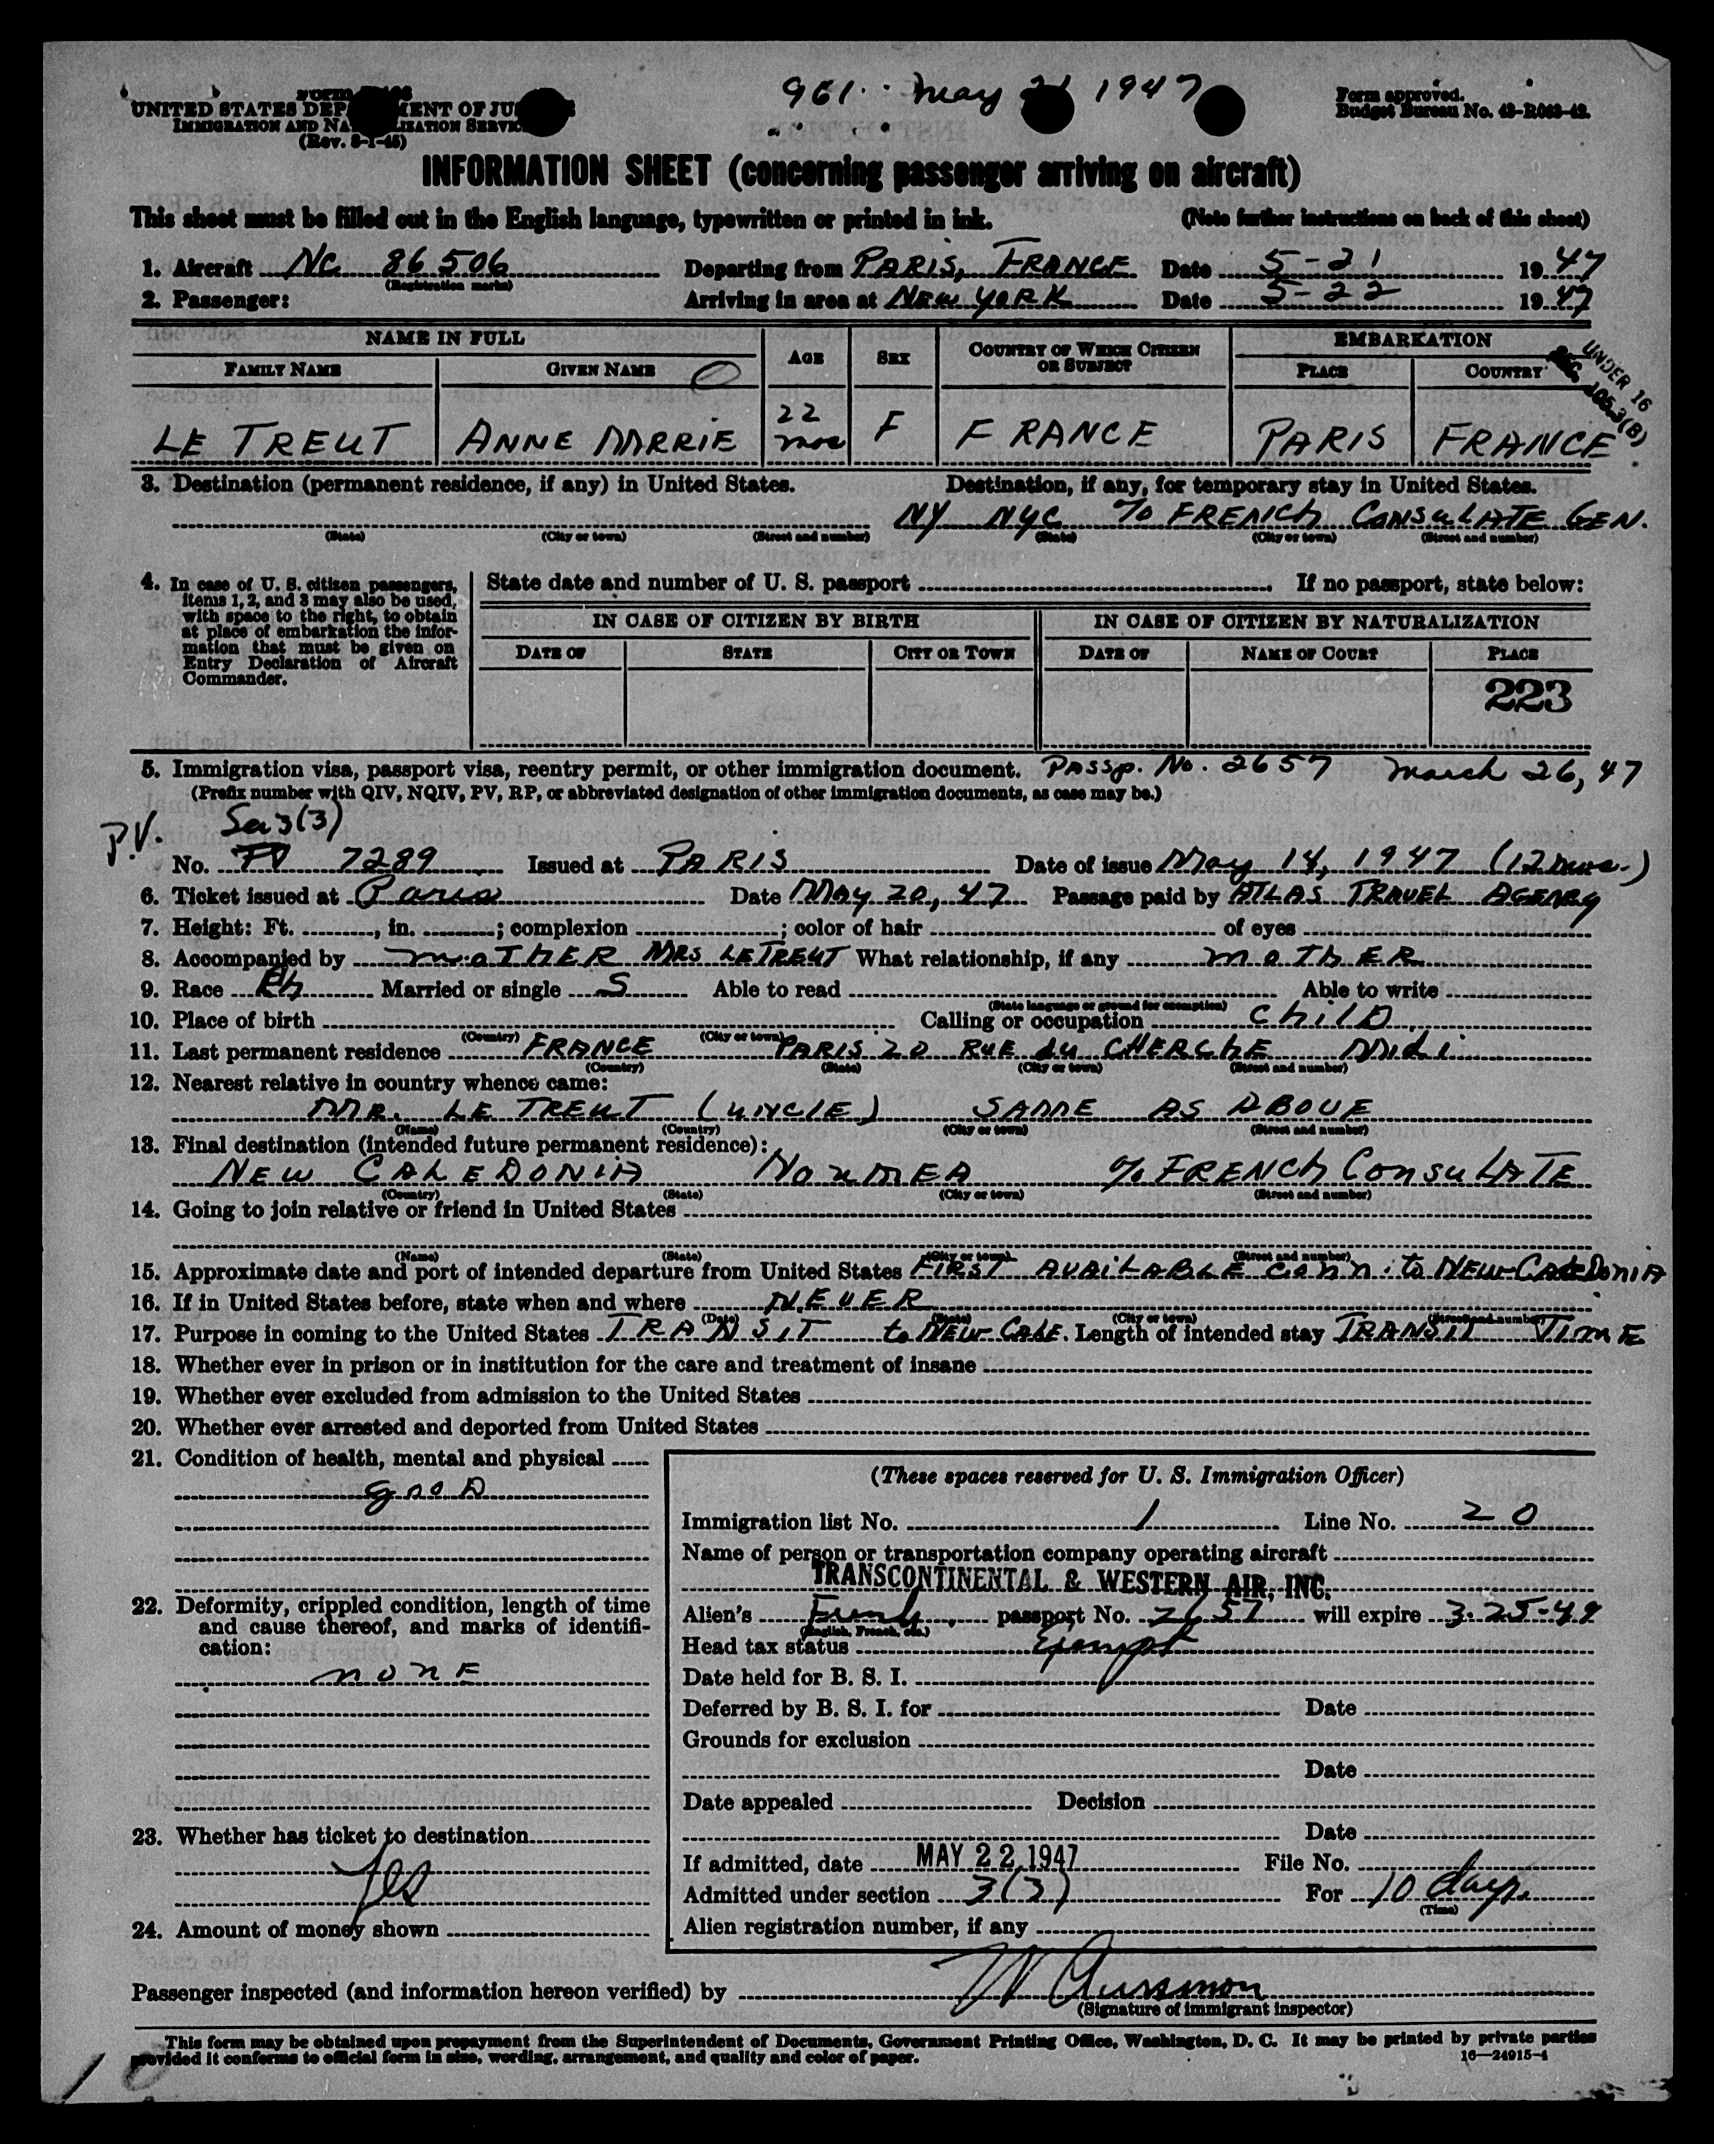 961 May 21 1947
UNITED STATES DEP MENT OF JU
IMMIGRATION AND NA LIZATION SERVIC
(Rev. 8-1-45)
Form approved.
Budget Bureau No. 43-R063-42.
INFORMATION SHEET (concerning passenger arriving on aircraft)
This sheet must be filled out in the English language, typewritten or printed in ink. (Note further instructions on back of this sheet)
1. Aircraft NC 86506 Departing from PARIS, FRANCE Date 5-21 1947
(Registration marks)
2. Passenger: Arriving in area at NEW YORK Date 5-22 1947
NAME IN FULL AGE SEX COUNTRY OF WHICH CITIZEN OR SUBJECT EMBARKATION
FAMILY NAME GIVEN NAME PLACE COUNTRY
UNDER 16
SEC. 105.3(B)
LE TREUT ANNE MARRIE 22 mos F FRANCE PARIS FRANCE
3. Destination (permanent residence, if any) in United States. Destination, if any, for temporary stay in United States.
NY NYC % FRENCH CONSULATE GEN.
(State) (City or town) (Street and number) (State) (City or town) (Street and number)
4. In case of U. S. citizen passengers, items 1, 2, and 3 may also be used, with space to the right, to obtain at place of embarkation the information that must be given on Entry Declaration of Aircraft Commander.
State date and number of U. S. passport If no passport, state below:
IN CASE OF CITIZEN BY BIRTH IN CASE OF CITIZEN BY NATURALIZATION
DATE OF STATE CITY OR TOWN DATE OF NAME OF COURT PLACE
223
5. Immigration visa, passport visa, reentry permit, or other immigration document. Passp. No. 2657 March 26, 47
(Prefix number with QIV, NQIV, PV, RP, or abbreviated designation of other immigration documents, as case may be.)
P.V. Sec 3(3)
No. 7289 Issued at PARIS Date of issue May 14, 1947 (12 mos.)
6. Ticket issued at Paris Date May 20, 47 Passage paid by ATLAS TRAVEL AGENCY
7. Height: Ft. , in. ; complexion ; color of hair of eyes
8. Accompanied by MOTHER MRS LE TREUT What relationship, if any MOTHER
9. Race Married or single S Able to read Able to write
(State language or ground for exemption)
10. Place of birth Calling or occupation CHILD
(Country) (City or town)
11. Last permanent residence FRANCE PARIS 20 RUE du CHERCHE Midi
(Country) (State) (City or town) (Street and number)
12. Nearest relative in country whence came:
MR. LE TREUT (UNCLE) SAME AS ABOVE
(Name) (Country) (City or town) (Street and number)
13. Final destination (intended future permanent residence):
NEW CALEDONIA NOUMEA % FRENCH CONSULATE
(Country) (State) (City or town) (Street and number)
14. Going to join relative or friend in United States
(Name) (State) (City or town) (Street and number)
15. Approximate date and port of intended departure from United States FIRST AVAILABLE CONN. to NEW CALEDONIA
16. If in United States before, state when and where NEVER
(Date) (State) (City or town) (Street and number)
17. Purpose in coming to the United States TRANSIT to NEW CALE. Length of intended stay TRANSIT TIME
18. Whether ever in prison or in institution for the care and treatment of insane
19. Whether ever excluded from admission to the United States
20. Whether ever arrested and deported from United States
21. Condition of health, mental and physical
GOOD
22. Deformity, crippled condition, length of time and cause thereof, and marks of identification:
NONE
23. Whether has ticket to destination
Yes
24. Amount of money shown
(These spaces reserved for U. S. Immigration Officer)
Immigration list No. 1 Line No. 20
Name of person or transportation company operating aircraft
TRANSCONTINENTAL & WESTERN AIR, INC.
Alien's French passport No. 2657 will expire 3-25-49
(English, French, etc.)
Head tax status Exempt
Date held for B. S. I.
Deferred by B. S. I. for Date
Grounds for exclusion
Date
Date appealed Decision
Date
If admitted, date MAY 22 1947 File No.
Admitted under section 3(3) For 10 days.
(Time)
Alien registration number, if any
Passenger inspected (and information hereon verified) by
(Signature of immigrant inspector)
This form may be obtained upon prepayment from the Superintendent of Documents, Government Printing Office, Washington, D. C. It may be printed by private parties
provided it conforms to official form in size, wording, arrangement, and quality and color of paper. 16—24915-4